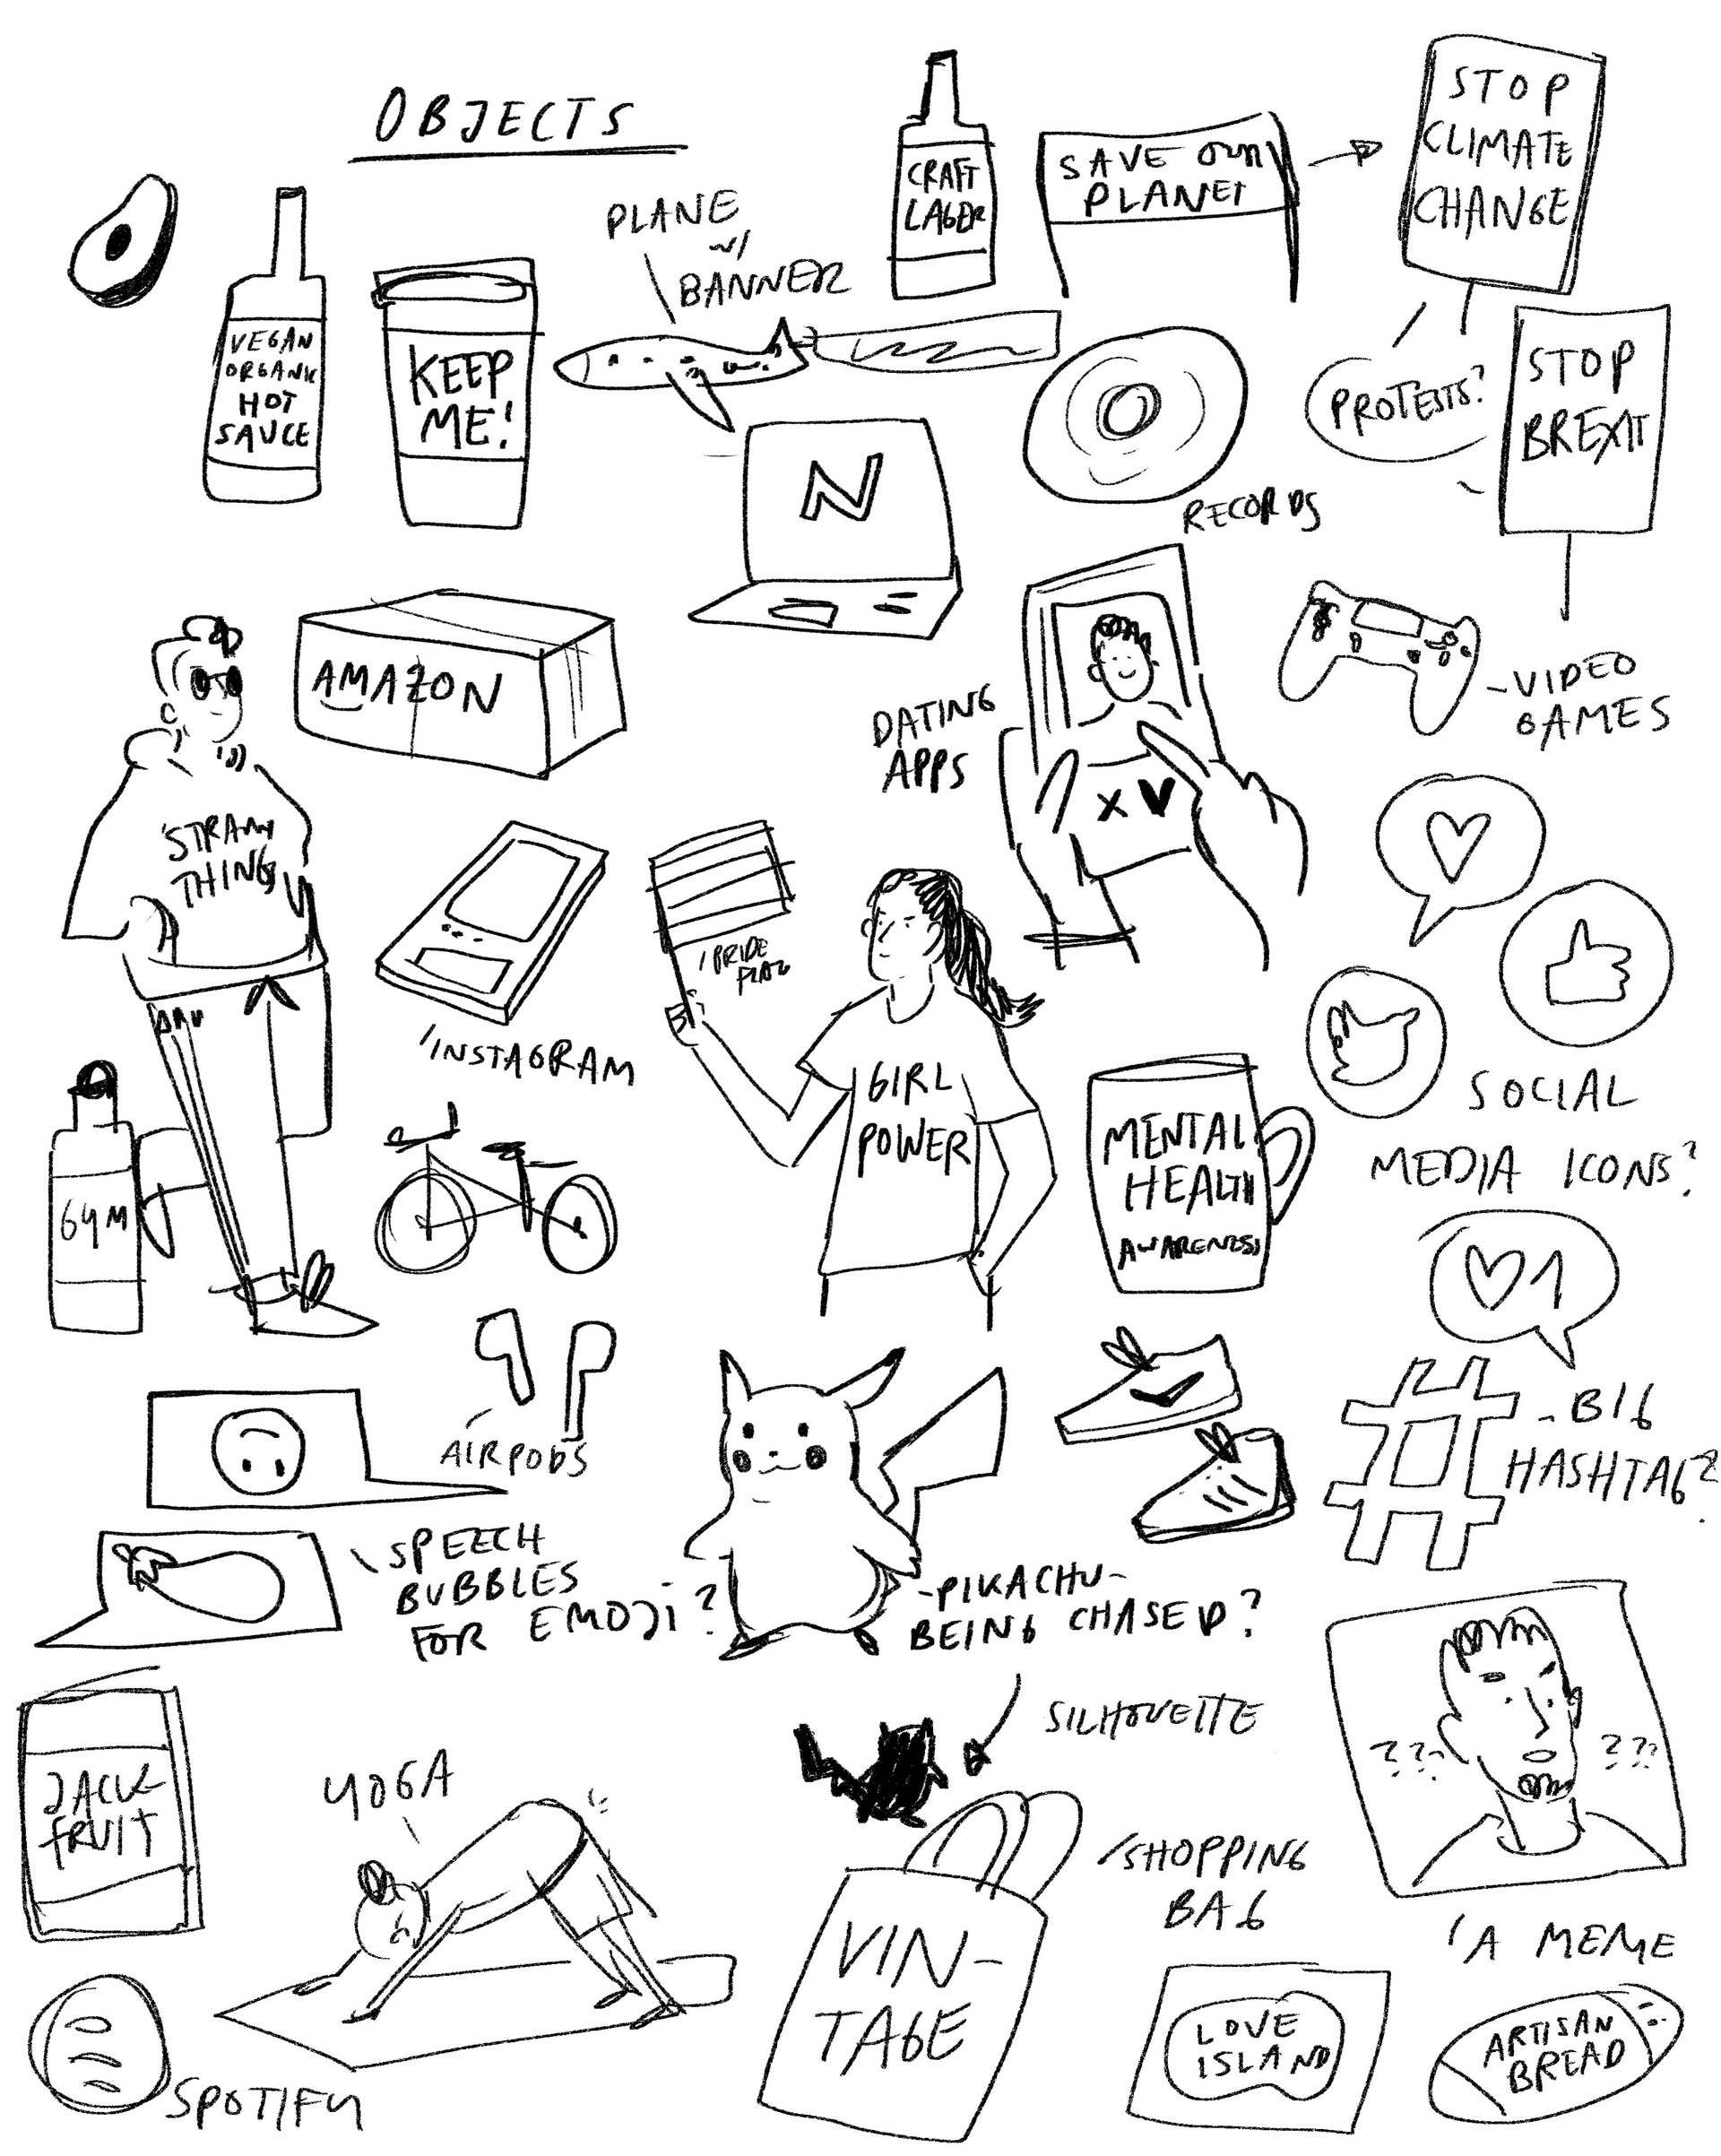 OBJECTS
CRAFT
LAGER
SAVE OUR
PLANET
STOP
CLIMATE
CHANGE
PLANE
W/
BANNER
VEGAN
ORGANIC
HOT
SAUCE
KEEP
ME!
N
RECORDS
PROTESTS?
STOP
BREXIT
AMAZON
DATING
APPS
X
-VIDEO
GAMES
STRANG
THINGS
'INSTAGRAM
PRIDE
FLAG
GIRL
POWER
SOCIAL
MEDIA ICONS?
GYM
MENTAL
HEALTH
AWARENESS
1
AIRPODS
- BIG
HASHTAG?
SPEECH
BUBBLES
FOR EMOJI?
-PIKACHU-
BEING CHASED?
SILHOUETTE
JACK-
FRUIT
YOGA
??? ???
'A MEME
SHOPPING
BAG
VIN-
TAGE
SPOTIFY
LOVE
ISLAND
ARTISAN
BREAD